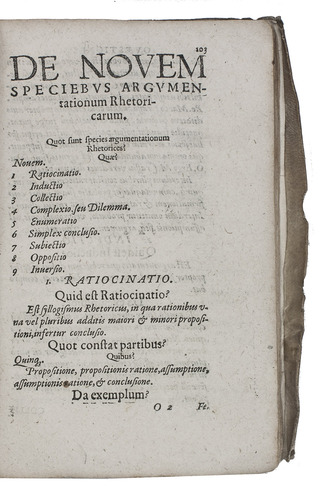 103
DE NOVEM
SPECIEBVS ARGVMEN-
tationum Rhetori-
carum.
Quot sunt species argumentationum
Rhetorices?
Quæ?
Novem.
1 Ratiocinatio.
2 Inductio
3 Collectio
4 Complexio, seu Dilemma.
5 Enumeratio
6 Simplex conclusio.
7 Subiectio
8 Oppositio
9 Inversio.
1. RATIOCINATIO.
Quid est Ratiocinatio?
Est syllogismus Rhetoricus, in qua rationibus v-
na vel pluribus additis maiori & minori proposi-
tioni, infertur conclusio.
Quot constat partibus?
Quinq. Quibus?
Propositione, propositionis ratione, assumptione,
assumptionis ratione, & conclusione.
Da exemplum?
O 2 Fe.